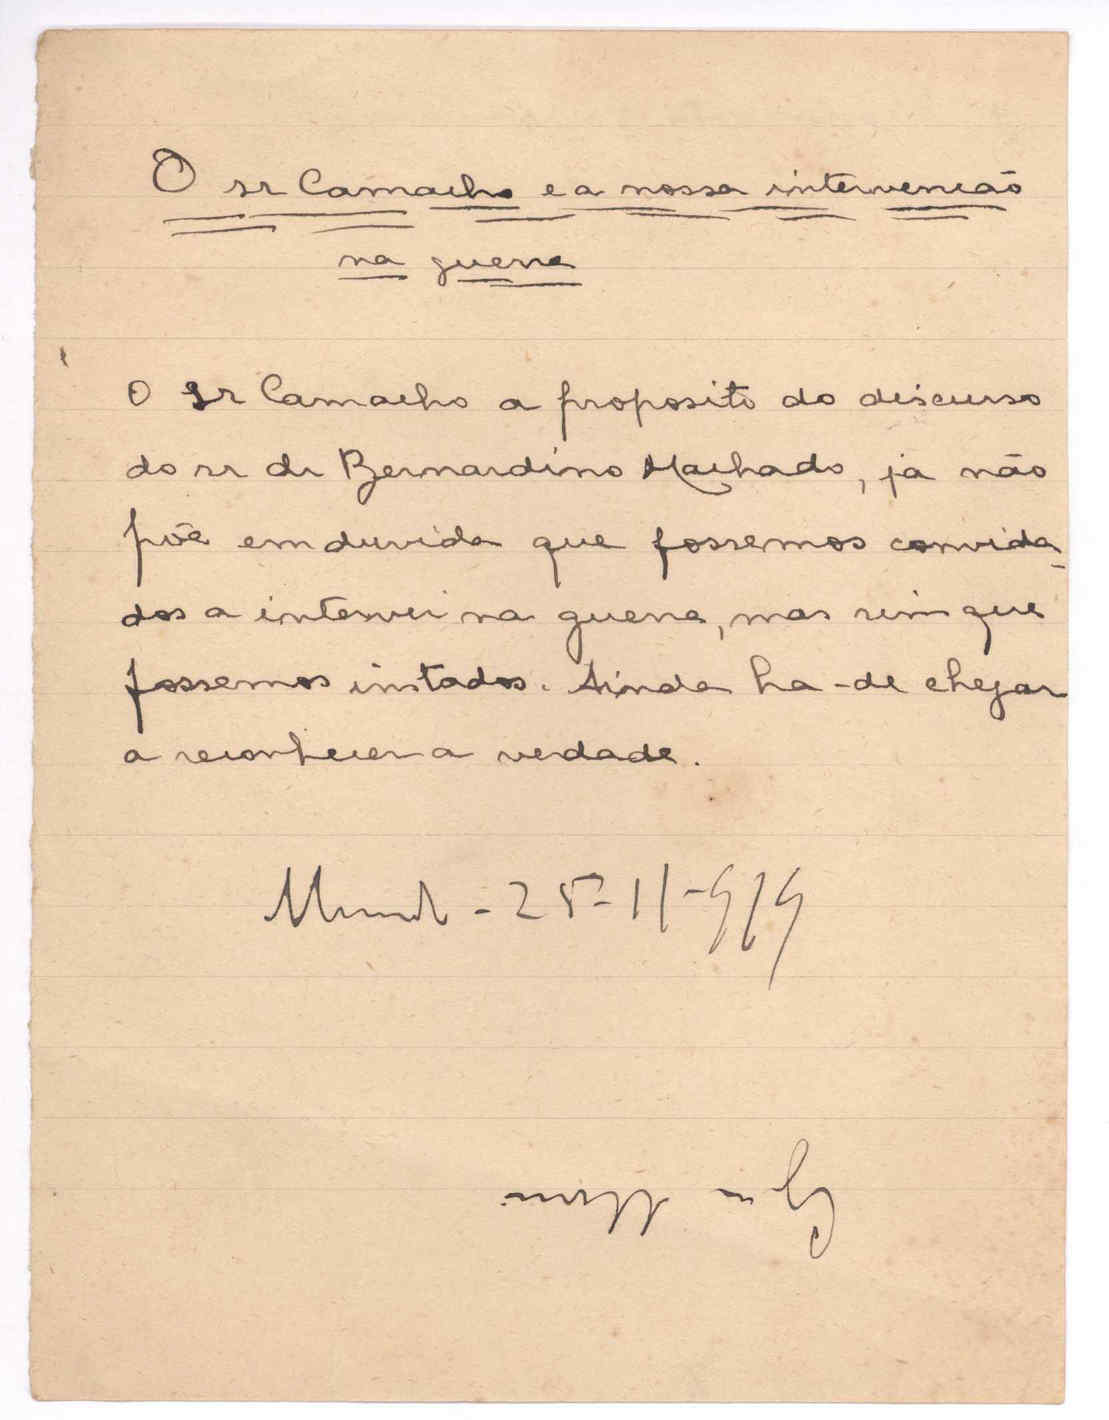 O sr Camacho e a nossa intervenção
na guerra
O Sr Camacho a proposito do discurso
do sr dr Bernardino Machado, já não
põe em duvida que fossemos convida-
dos a intervir na guerra, mas sim que
fossemos instados. Ainda ha-de chegar
a reconhecer a verdade.
Mundo - 25-11-919